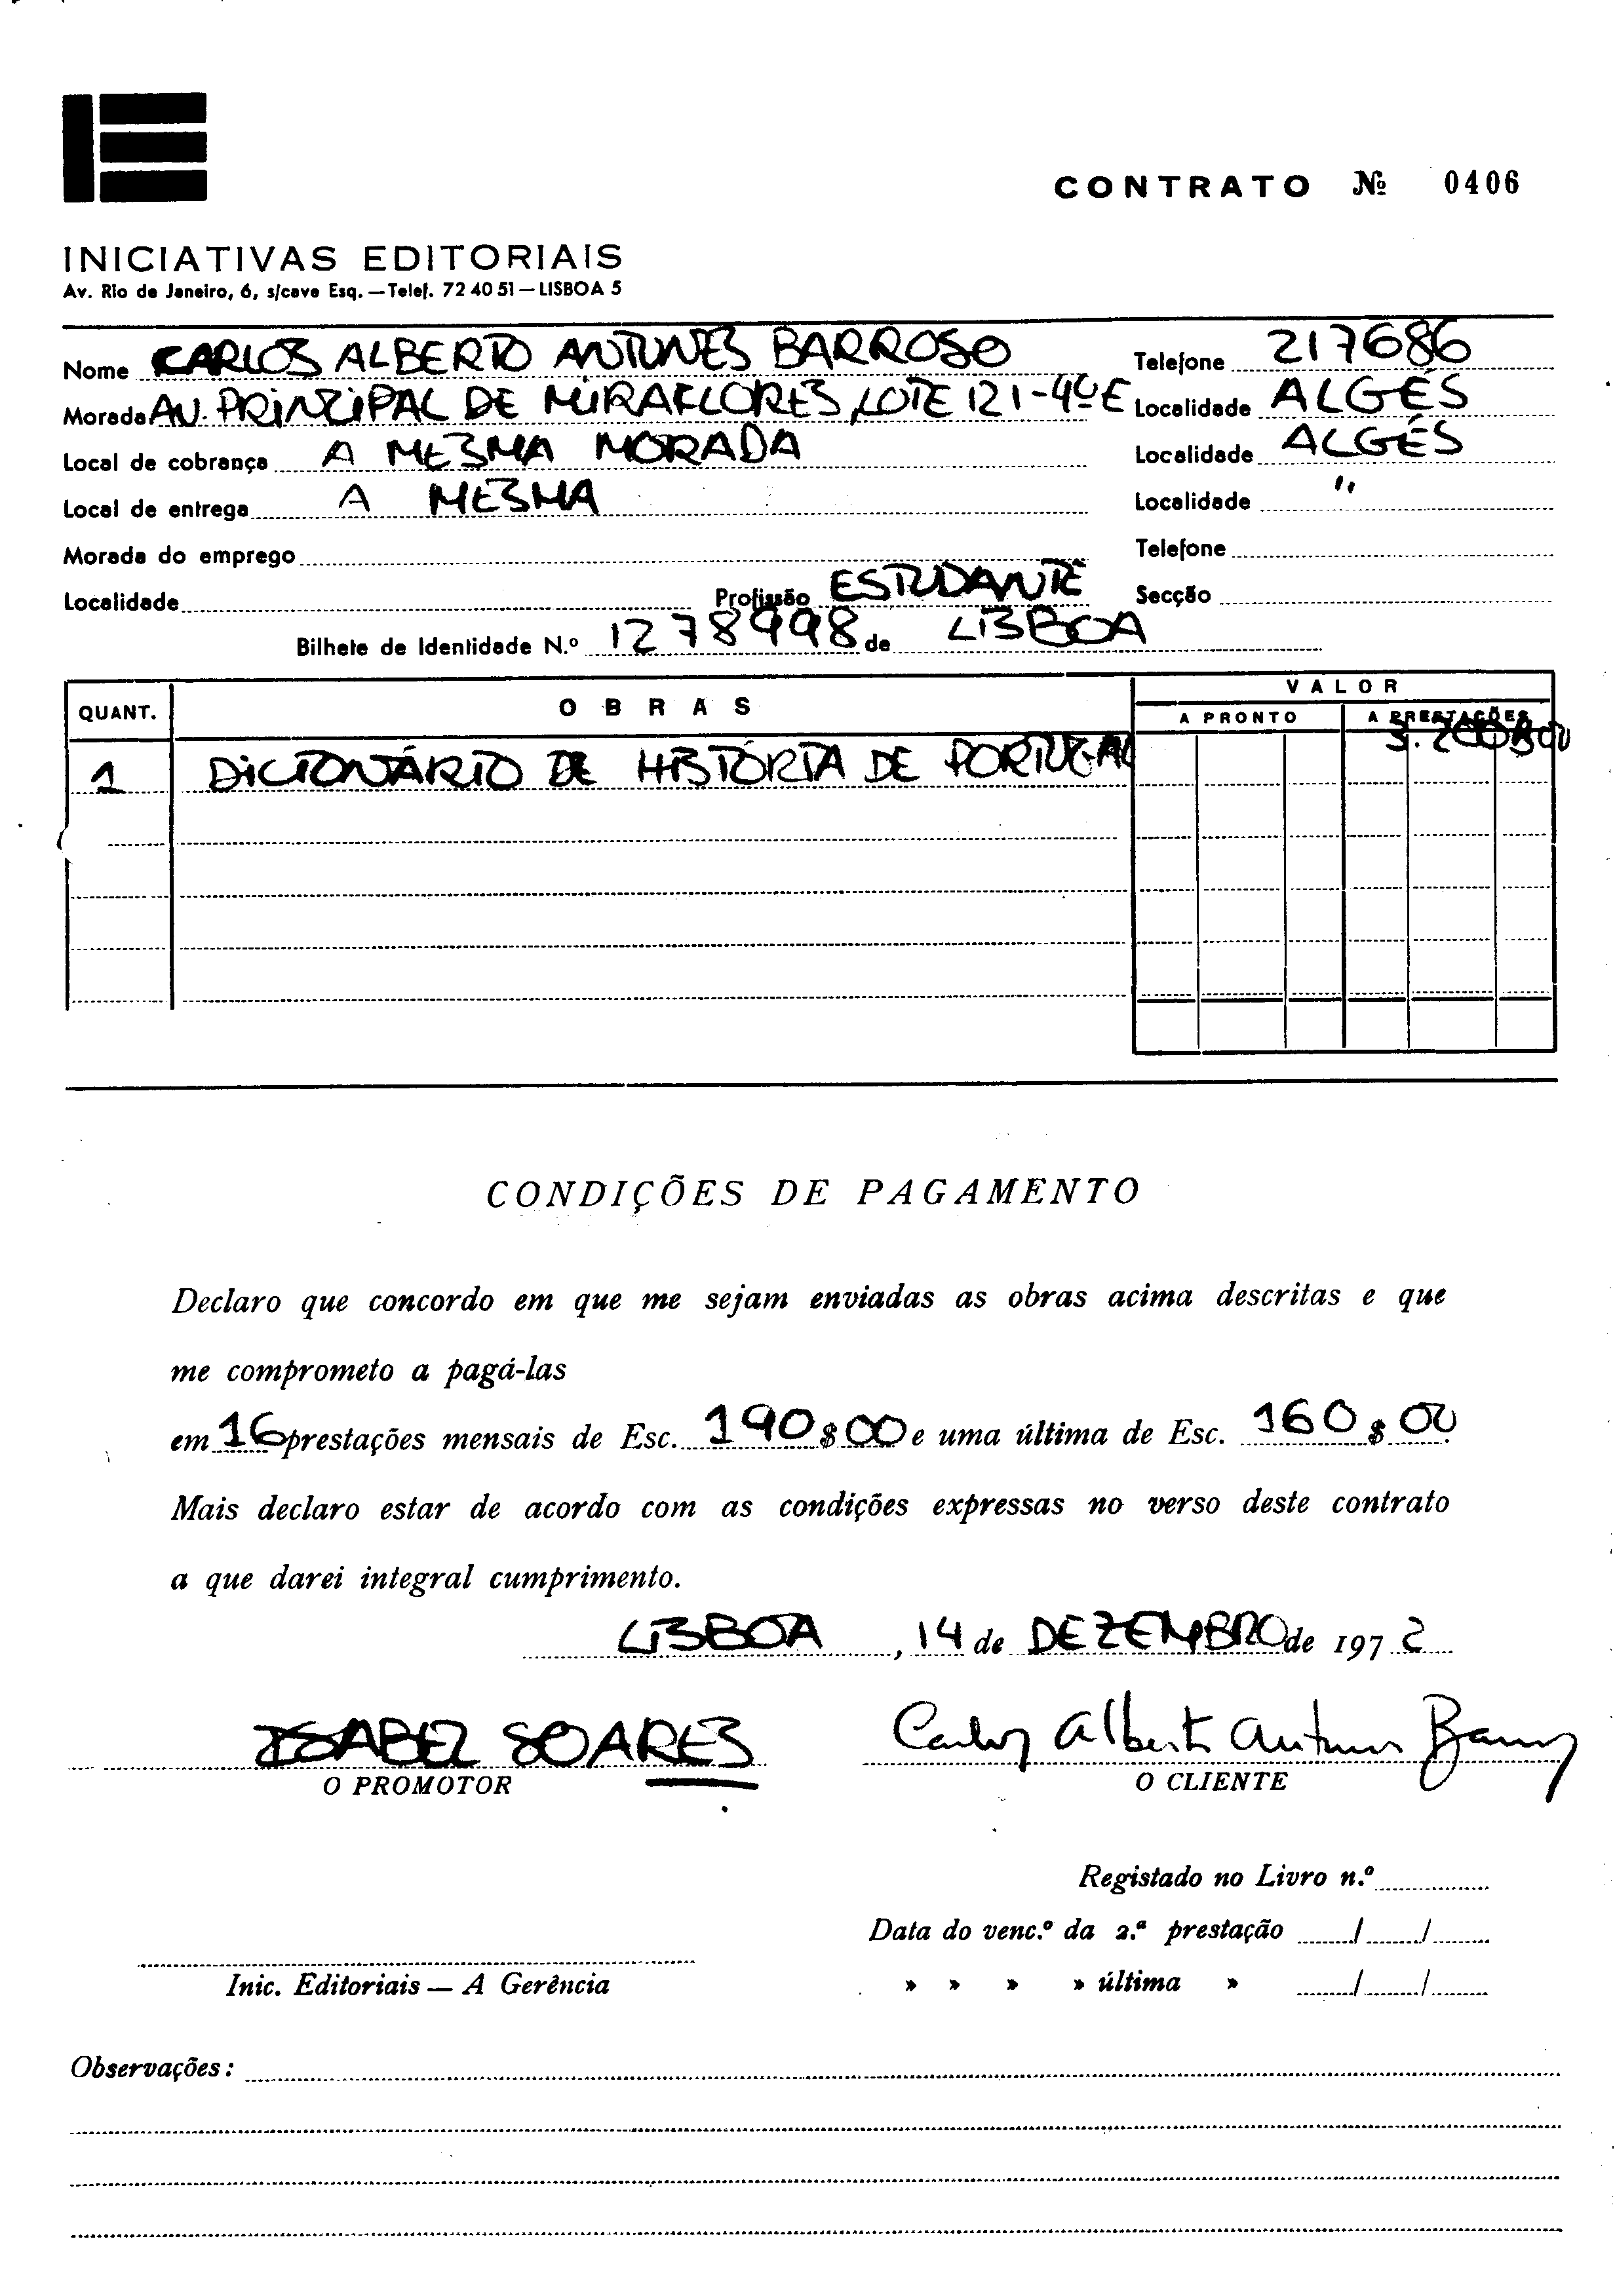 CONTRATO Nº 0406
INICIATIVAS EDITORIAIS
Av. Rio de Janeiro, 6, s/cave Esq. — Telef. 72 40 51 — LISBOA 5
Nome CARLOS ALBERTO ANTUNES BARROSO Telefone 217686
Morada AV. PRINCIPAL DE MIRAFLORES, LOTE 121-4º E Localidade ALGÉS
Local de cobrança A MESMA MORADA Localidade ALGÉS
Local de entrega A MESMA Localidade "
Morada do emprego Telefone
Localidade Profissão ESTUDANTE Secção
Bilhete de Identidade N.º 1278998 de LISBOA
QUANT. OBRAS VALOR
A PRONTO A PRESTAÇÕES
1 DICIONÁRIO DE HISTÓRIA DE PORTUGAL 3.200$00
CONDIÇÕES DE PAGAMENTO
Declaro que concordo em que me sejam enviadas as obras acima descritas e que
me comprometo a pagá-las
em 16 prestações mensais de Esc. 190$00 e uma última de Esc. 160$00
Mais declaro estar de acordo com as condições expressas no verso deste contrato
a que darei integral cumprimento.
LISBOA, 14 de DEZEMBRO de 1972
ISABEL SOARES Carlos Alberto Antunes Barroso
O PROMOTOR O CLIENTE
Registado no Livro n.º
Data do venc.º da 2.ª prestação / /
Inic. Editoriais — A Gerência » » » » última » / /
Observações: